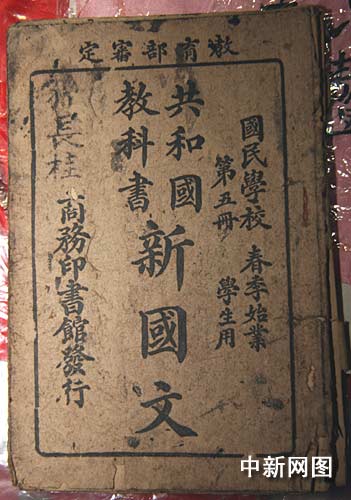 教育部審定
國民學校 春季始業
第五冊 學生用
共和國
教科書
新國文
商務印書館發行
長桂
中新网图